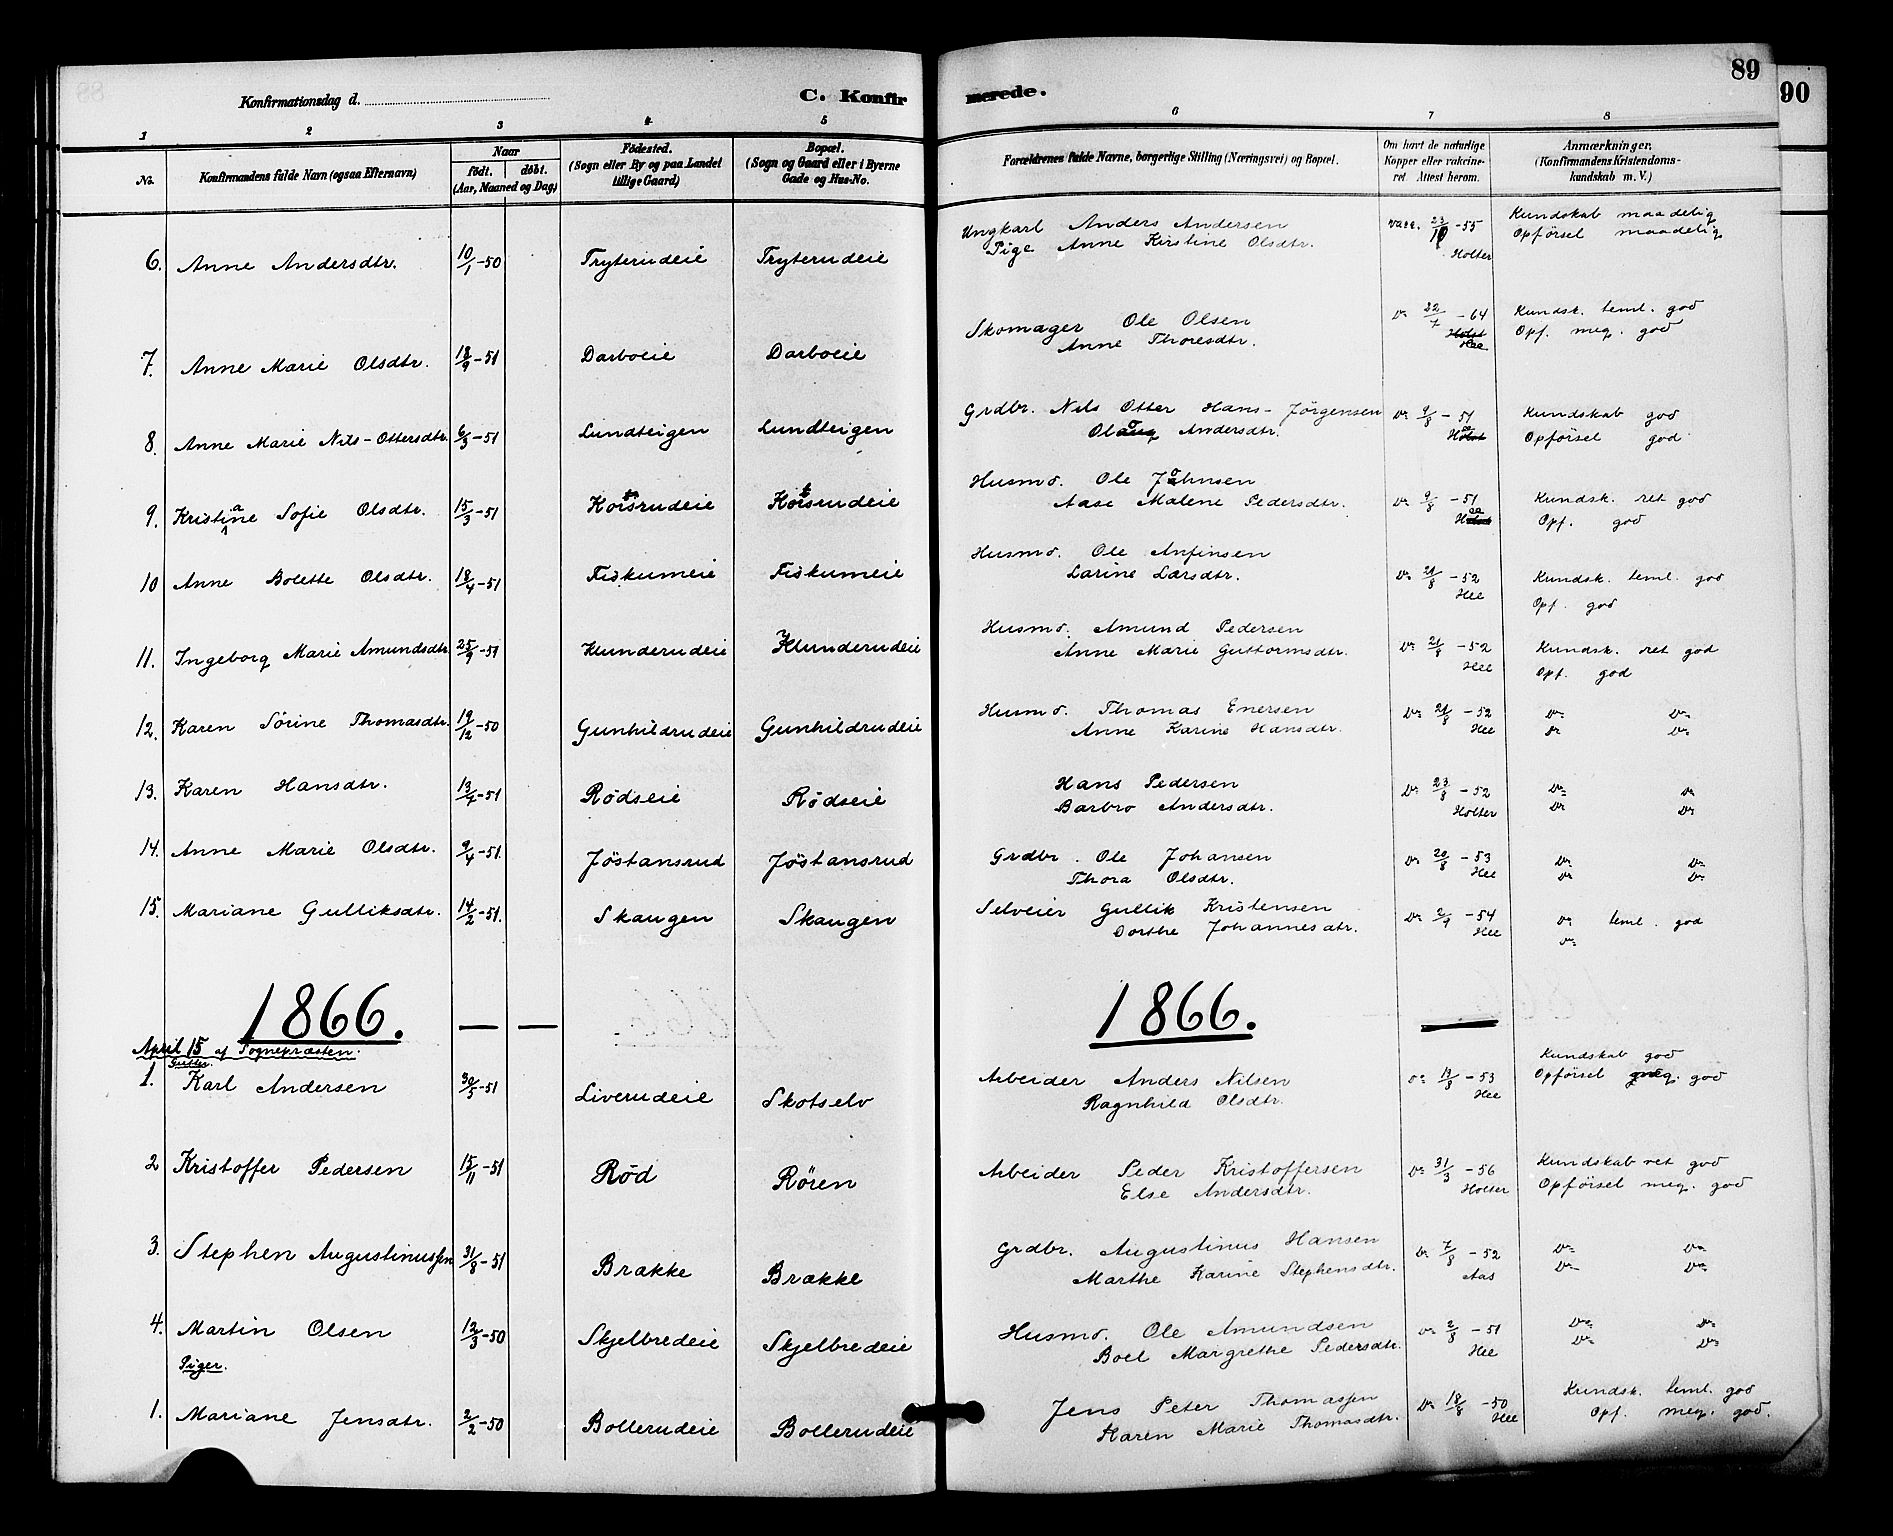 89
90
Konfirmationsdag d.
C. Konfirmerede.
1 2 3 4 5 6 7 8
No.
Konfirmandens fulde Navn (ogsaa Efternavn)
Naar
født. døbt.
(Aar, Maaned og Dag)
Fødested.
(Sogn eller By og paa Landet
tillige Gaard)
Bopæl.
(Sogn og Gaard eller i Byerne
Gade og Hus-No.
Forældrenes fulde Navne, borgerlige Stilling (Næringsvei) og Bopæl.
Om havt de naturlige
Kopper eller vakcine-
ret. Attest herom.
Anmærkninger.
(Konfirmandens Kristendoms-
kundskab m. V.)
Ungkarl Anders Andersen vacc. -55 Kundskab maadelig
Pige Anne Kirstine Olsdtr. Holter Opførsel maadelig
6. Anne Andersdtr. 10/1-50 Tryterudeie Tryterudeie
Skomager Ole Olsen Do 22/7-64 Kundsk. teml. god
Anne Thoresdtr. Hee Opf. meg. god
7. Anne Marie Olsdtr. 18/9-51 Darboeie Darboeie
Grdbr. Nils Otter Hans-Jörgensen Do 9/8-51 Kundskab god
Andersdtr. Opførsel god
8. Anne Marie Nils-Ottersdtr. 6/3-51 Lundteigen Lundteigen
Husmd. Ole Johnsen
Aase Malene Pedersdtr. Do 9/8-51 Kundsk. ret god
Opf. god
9. Kristiane Sofie Olsdtr. 15/3-51
Husmd. Ole Anfinsen
Larine Larsdtr. Do 21/8-52 Kundsk. teml. god
Hee Opf. god
10 Anne Bolette Olsdtr. 18/4-51 Fiskumeie Fiskumeie
Husmd. Amund Pedersen
Anne Marie Guttormsdtr. Do 21/8-52 Kundsk. ret god
Hee Opf. god
11. Ingeborg Marie Amundsdtr. 25/9-51 Klunderudeie Klunderudeie
Husmd. Thomas Enersen Do 21/8-52 Do Do
Anne Karine Hansdtr. Hee Do Do
12. Karen Sørine Thomasdtr. 19/12-50 Gunhildrudeie Gunhildrudeie
13. Karen Hansdtr. 13/7-51 Rödseie Rödseie
Hans Pedersen Do 23/8-52 Do Do
Barbro Andersdtr. Holter Do Do
14. Anne Marie Olsdtr. 9/4-51. Jöstansrud Jöstansrud
Grdbr. Ole Johansen Do 20/8-53 Do Do
Thora Olsdtr. Hee Do Do
15. Mariane Gulliksdtr. 14/2-51. Skaugen Skaugen
Selveier Gullik Kristensen Do 2/9-54 Do teml. god
Dorthe Johannesdtr. Hee Do
1866. — — 1866. —
April 15 af Sognepræsten.
Gutter.
1. Karl Andersen 30/5-51 Liverudeie Skotselv
Arbeider Anders Nilsen Do 13/8-53 Kundskab god
Ragnhild Olsdtr. Hee Opførsel meg. god
2 Kristoffer Pedersen 15/11-51 Röd Rören
Arbeider Peder Kristoffersen Do 31/3-56 Kundskab ret god
Else Andersdtr. Holter Opförsel meg. god
3. Stephen Augustinussen 31/8-51 Brække Brække
Grdbr. Augustinus Hansen Do 7/8-52 Do Do
Marthe Karine Stephensdtr. Aas Do Do
4. Martin Olsen 12/3-50 Skjelbredeie Skjelbredeie
Husmd. Ole Amundsen Do 2/8-51 Do Do
Boel Margrethe Pedersdtr. Hee Do Do
Piger.
1. Mariane Jensdtr. 2/2-50 Bollerudeie Bollerudeie
Jens Peter Thomassen Do 18/8-50 Kundsk. teml. god
Karen Marie Thomasdtr. Hee Opf. meg. god.